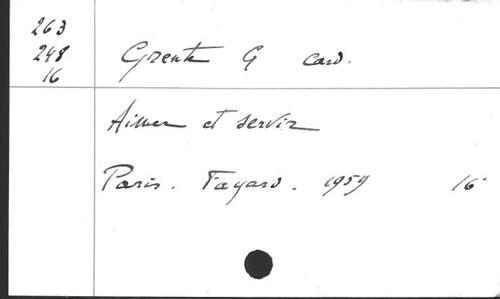 263
248
16
Grente G card.
Aimer et servir
Paris. Fayard. 1959 16°